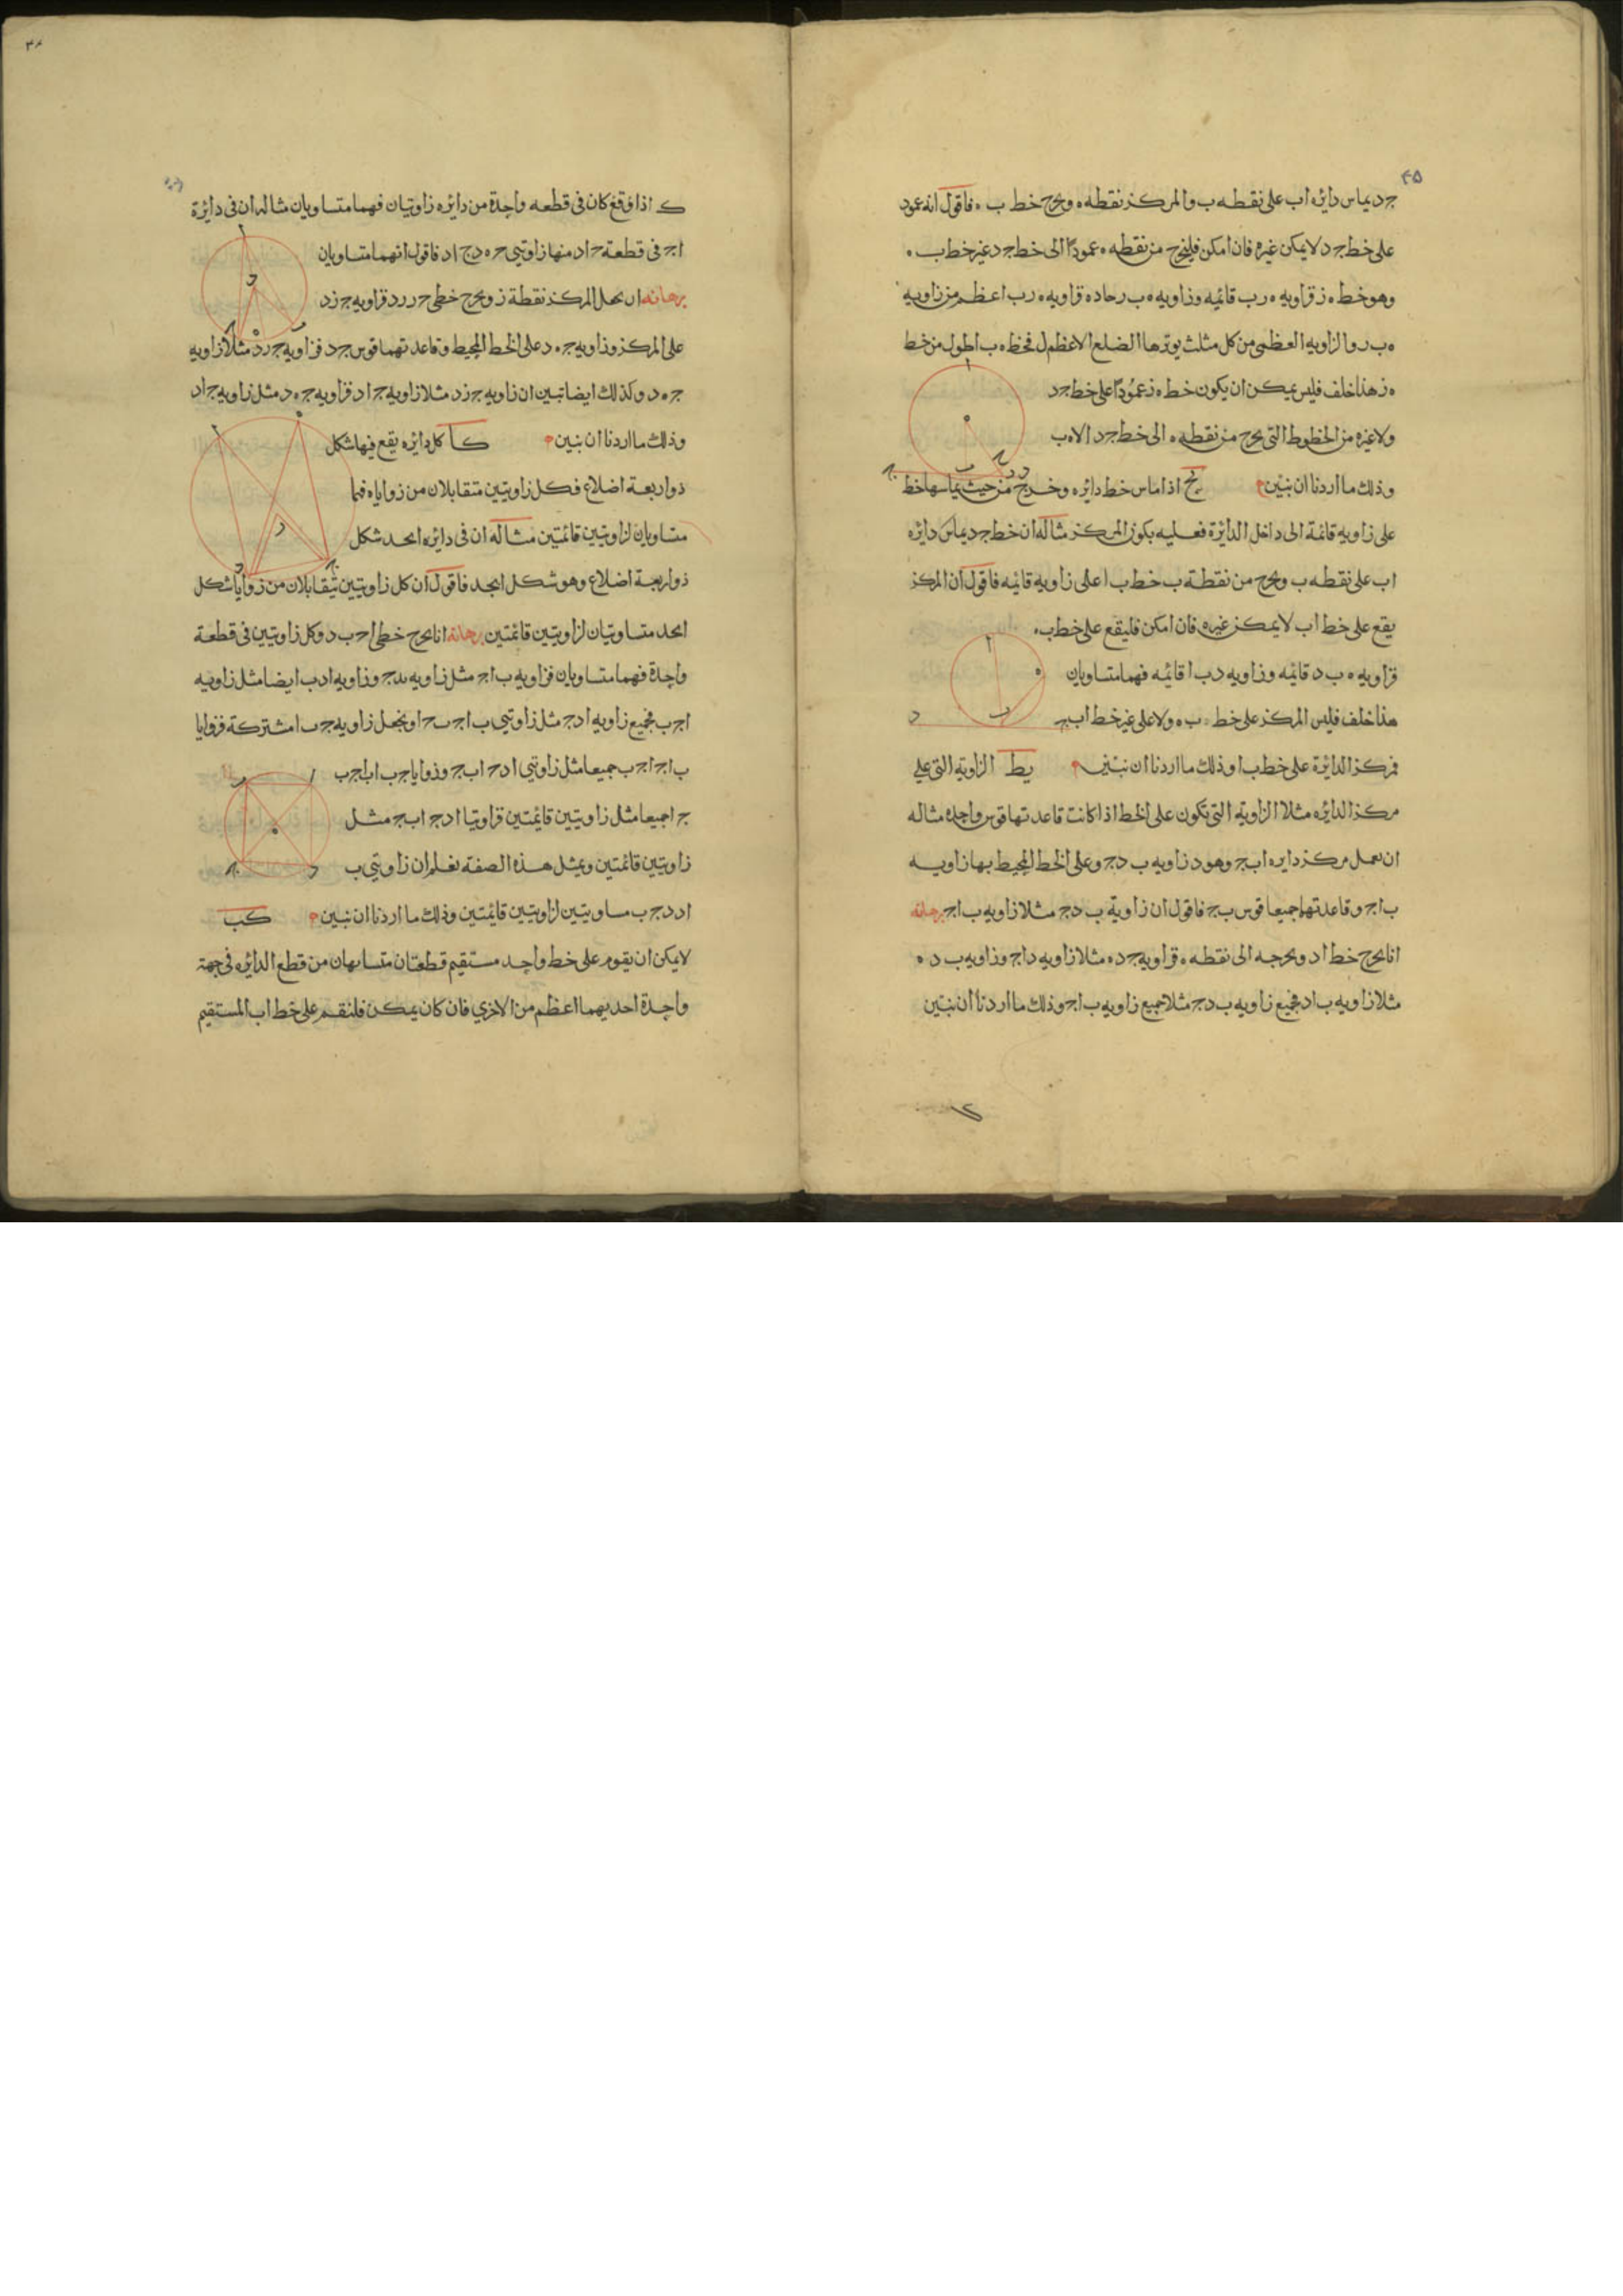 ٤٥
جد يماس دايره اب على نقطه ب والمركز نقطه ه ويخرج خط ب ه فاقول انه عمود
على خط جد لا يمكن غيره فان امكن فليخرج من نقطه ه عمودًا الى خط جد غير خط ب ه
وهو خط ه ز فزاويه ه ر ب قائمه وزاويه ه ب ر حاده فزاويه ه ر ب اعظم من زاويه
ه ب ر والزاويه العظمى من كل مثلث يوترها الضلع الاعظم فخط ه ب اطول من خط
ه ز هذا خلف فليس يمكن ان يكون خط ه ز عمودًا على خط جد
ولا غيره من الخطوط التى يخرج من نقطه ه الى خط جد الا ه ب
وذلك ما اردنا ان نبين يح اذا ماس خط دايره وخرج من حيث يماسها خط
على زاويه قائمة الى داخل الدائرة فعليه يكون المركز مثاله ان خط جد يماس دايره
اب على نقطه ب ويخرج من نقطة ب خط ب ا على زاويه قائمه فاقول ان المركز
يقع على خط اب لا يمكن غيره فان امكن فليقع على خط ب ه
فزاويه ه ب د قائمه وزاويه د ب ا قائمه فهما متساويان
هذا خلف فليس المركز على خط ب ه ولا على غير خط اب
فمركز الدائرة على خط ب ا وذلك ما اردنا ان نبين يط الزاوية التى على
مركز الدائره مثلا الزاوية التى تكون على الخط اذا كانت قاعدتها قوس واحده مثاله
ان نعمل مركز دايره ابج وهو د زاويه ب دج وعلى الخط المحيط بها زاويه
ب اج وقاعدتهما جميعا قوس بج فاقول ان زاوية ب دج مثلا زاويه ب اج برهانه
انا نخرج خط اد ونخرجه الى نقطه ه فزاويه جده مثلا زاويه داج وزاويه ب د ه
مثلا زاويه ب اد فجميع زاويه ب دج مثلا جميع زاويه ب اج وذلك ما اردنا ان نبين
ك اذا وقع كان فى قطعه واحدة من دائره زاويتان فهما متساويان مثاله ان فى دايرة
اج فى قطعة ج اد منها زاويتى ج ه د ج اد فاقول انهما متساويان
برهانه ان نجعل المركز نقطة ز ويخرج خطى ج ر ر د فزاويه ج ز د
على المركز وزاويه ج ه د على الخط المحيط وقاعدتهما قوس ج د فزاويه ج ر د مثلا زاويه
ج ه د وكذلك ايضا تبين ان زاويه ج ز د مثلا زاويه ج اد فزاويه ج ه د مثل زاويه ج اد
وذلك ما اردنا ان نبين كا كل دايره يقع فيها شكل
ذو اربعة اضلاع فكل زاويتين متقابلان من زواياه فهما
متساويان لزاويتين قائمتين مثاله ان فى دايره ابجد شكل
ذو اربعة اضلاع وهو شكل ابجد فاقول ان كل زاويتين تتقابلان من زوايا شكل
ابجد متساويتان لزاويتين قائمتين برهانه انا نخرج خطى اج ب د وكل زاويتين فى قطعة
واحدة فهما متساويان فزاويه ب اج مثل زاويه بدج وزاويه ادب ايضا مثل زاويه
اجب فجميع زاويه ادج مثل زاويتى ب اج بجا ونجعل زاويه ج ب ا مشتركة فزوايا
ب اج اجب جميعا مثل زاويتى ادج ابج وزوايا جب اب اجب
ج ا جميعا مثل زاويتين قائمتين فزاويتا ادج ابج مثل
زاويتين قائمتين وبمثل هذه الصفة نعلم ان زاويتى ب
اد دج ب مساويتين لزاويتين قائمتين وذلك ما اردنا ان نبين كب
لا يمكن ان يقوم على خط واحد مستقيم قطعتان متشابهان من قطع الدائره فى جهة
واحدة احديهما اعظم من الاخرى فان كان يمكن فلنقم على خط اب المستقيم